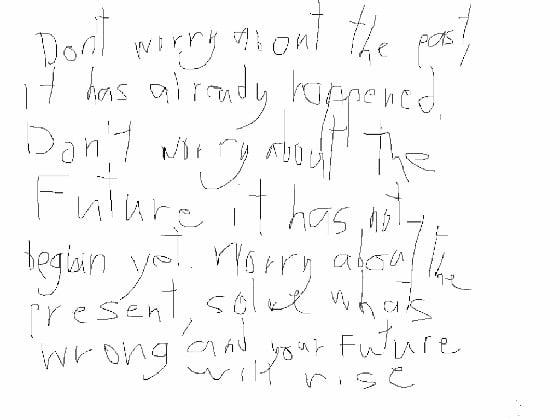 Don't worry about the past,
it has already happened.
Don't worry about The
Future it has not
begun yet. Worry about the
present, solve whats
wrong, and your Future
will rise